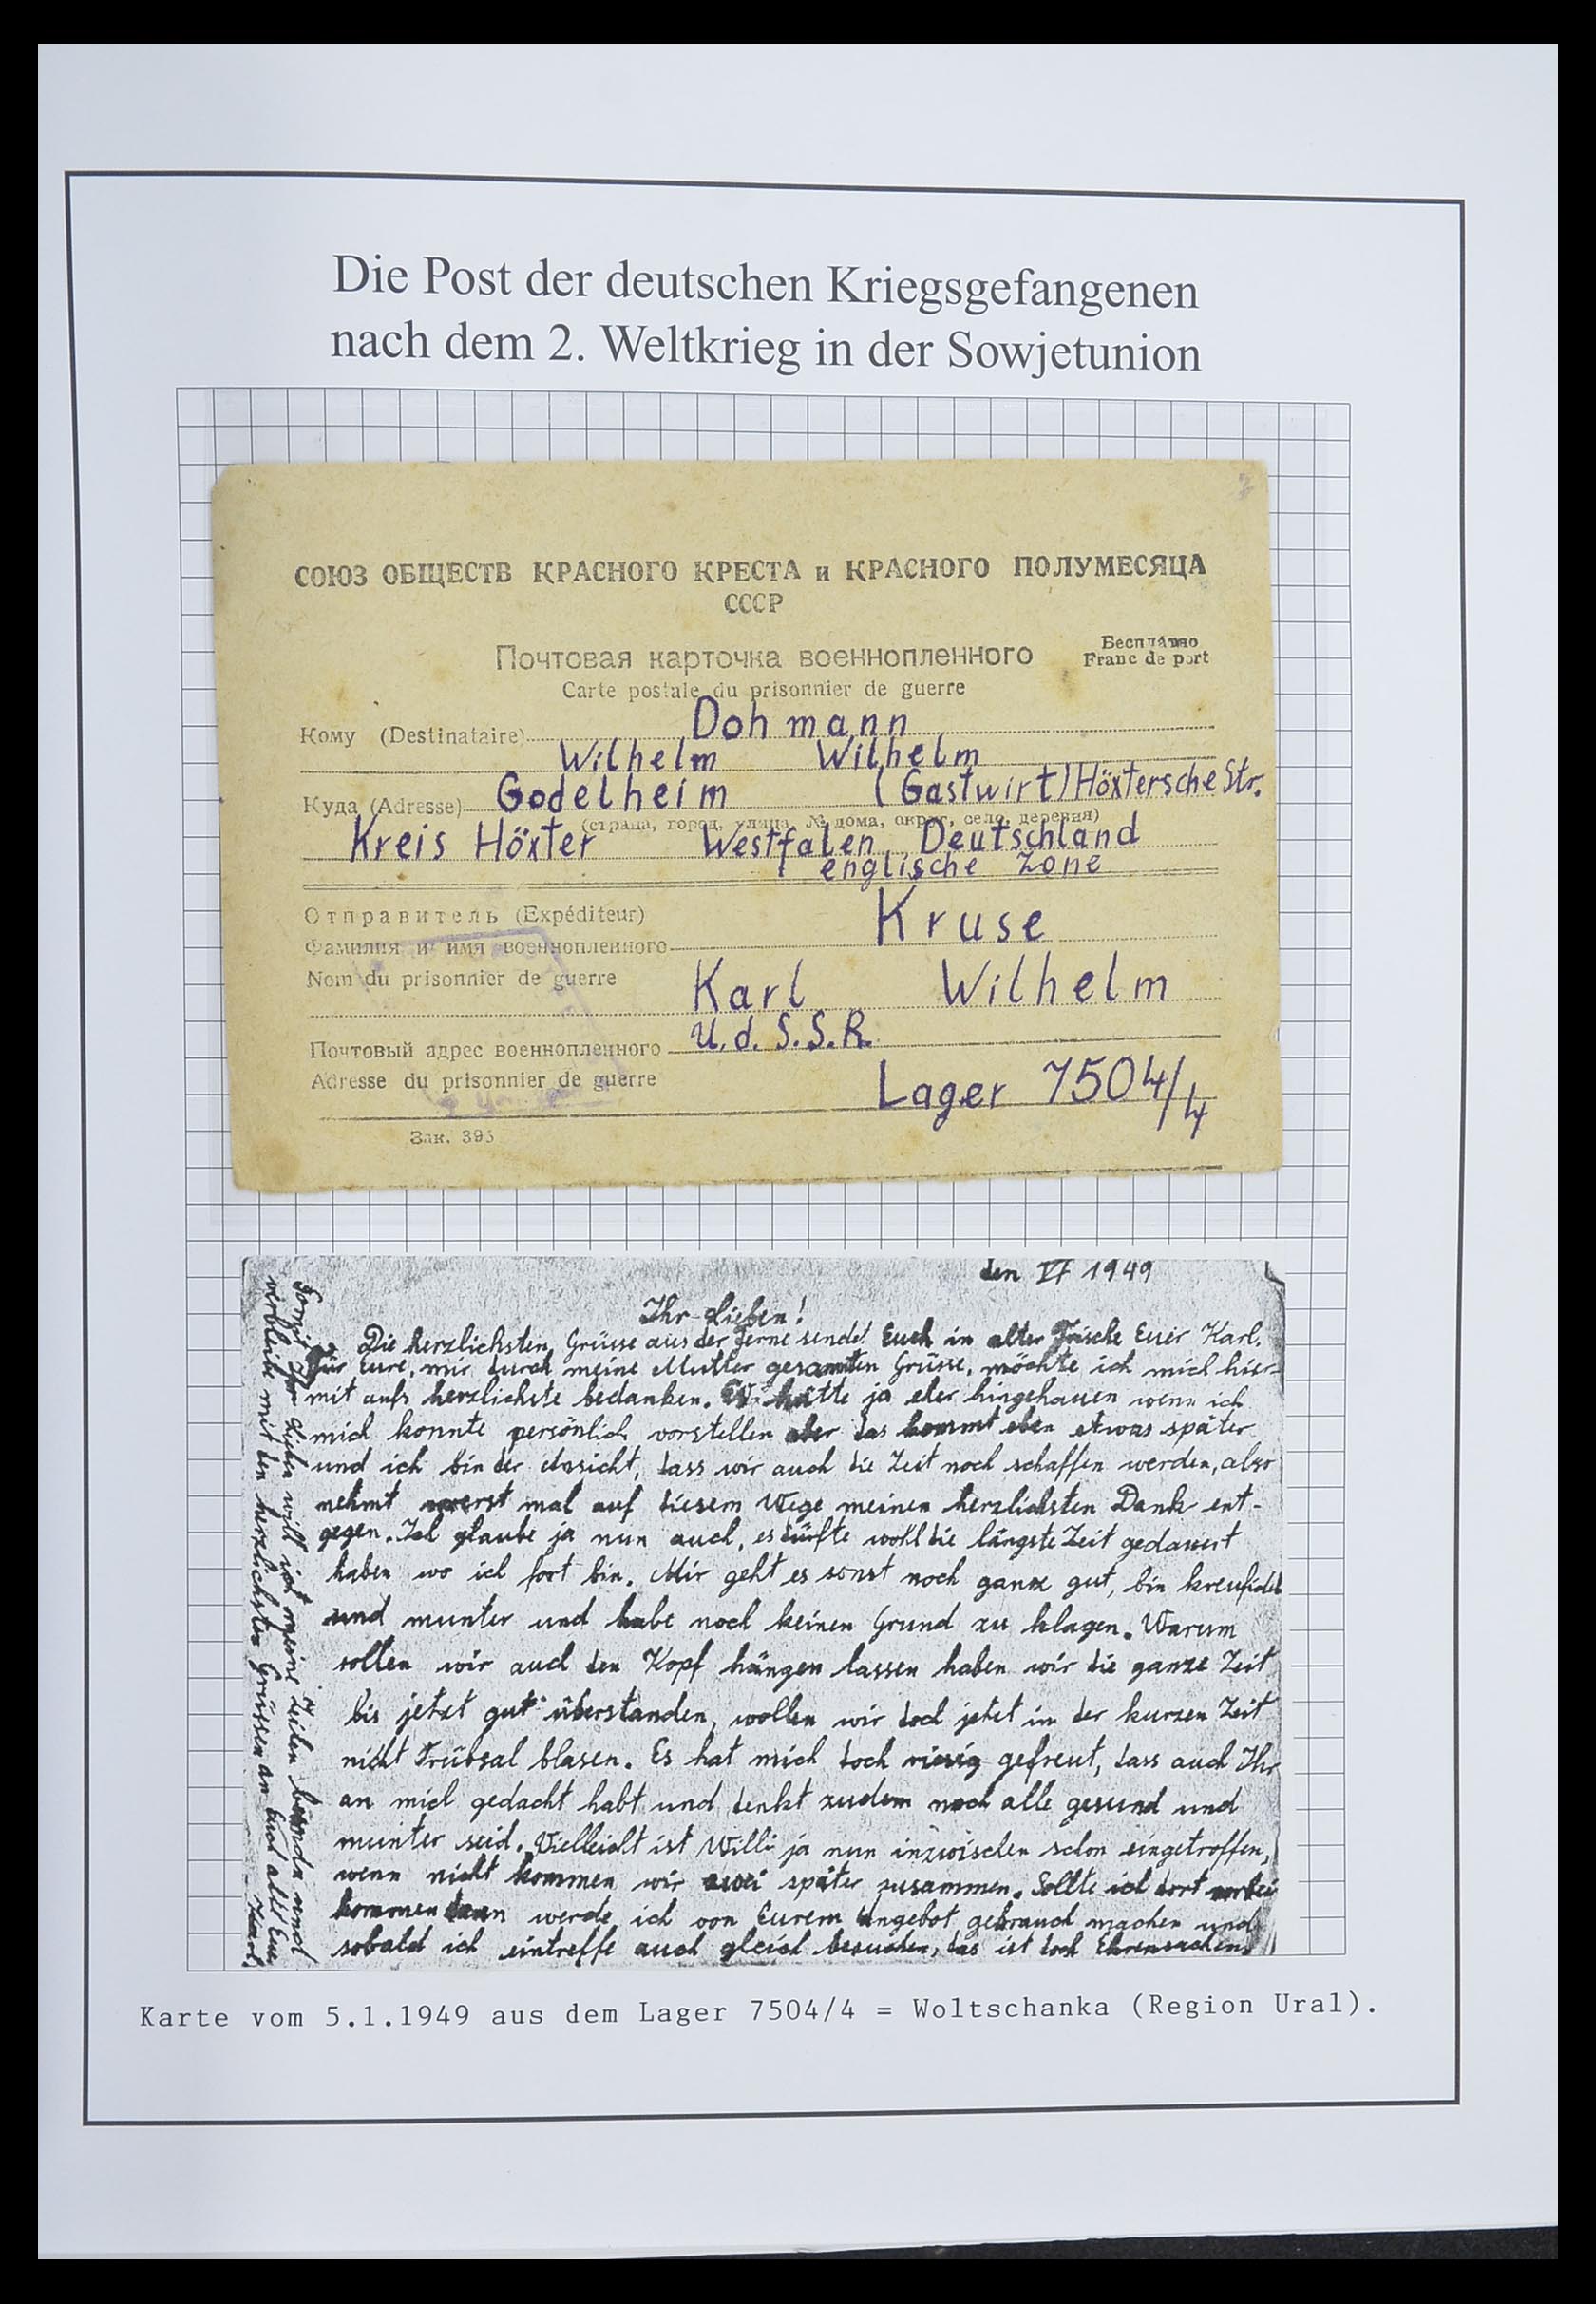 Die Post der deutschen Kriegsgefangenen
nach dem 2. Weltkrieg in der Sowjetunion
СОЮЗ ОБЩЕСТВ КРАСНОГО КРЕСТА и КРАСНОГО ПОЛУМЕСЯЦА
СССР
Почтовая карточка военнопленного
Бесплатно
Franc de port
Carte postale du prisonnier de guerre
Кому (Destinataire) Dohmann
Wilhelm Wilhelm
Куда (Adresse) Godelheim (Gastwirt) Höxtersche Str.
(страна, город, улица, № дома, округ, село, деревня)
Kreis Höxter Westfalen Deutschland
englische Zone
Отправитель (Expéditeur)
Фамилия и имя военнопленного Kruse
Nom du prisonnier de guerre Karl Wilhelm
Почтовый адрес военнопленного U.d.S.S.R.
Adresse du prisonnier de guerre Lager 7504/4
Зак. 395
den 1949
Ihr Lieben!
Die herzlichsten Grüsse aus der Ferne sendet Euch in alter Frische Euer Karl.
Für Eure, mir durch meine Mutter gesannten Grüsse, möchte ich mich hier-
mit aufs herzlichste bedanken. Es hätte ja eher hingehauen wenn ich
mich konnte persönlich vorstellen aber das kommt eben etwas später
und ich bin der Ansicht, dass wir auch die Zeit noch schaffen werden, also
nehmt mal auf diesem Wege meinen herzlichsten Dank ent-
gegen. Ich glaube ja nun auch, es dürfte wohl die längste Zeit gedauert
haben wo ich fort bin. Mir geht es sonst noch ganz gut, bin kreuzfidel
und munter und habe noch keinen Grund zu klagen. Warum
sollen wir auch den Kopf hängen lassen haben wir die ganze Zeit
bis jetzt gut überstanden, wollen wir doch jetzt in der kurzen Zeit
nicht Trübsal blasen. Es hat mich doch riesig gefreut, dass auch Ihr
an mich gedacht habt und denkt zudem noch alle gesund und
munter seid. Vielleicht ist Willi ja nun inzwischen schon eingetroffen,
wenn nicht kommen wir zwei später zusammen. Sollte ich dort vorbei
kommen dann werde ich von Eurem Angebot gebrauch machen und
sobald ich eintreffe auch gleich besuchen, das ist doch Ehrensachen.
Somit Ihr Lieben will ich meine Zeilen beenden und
verbleibe mit den herzlichsten Grüssen an Euch alle Euer
Karl
Karte vom 5.1.1949 aus dem Lager 7504/4 = Woltschanka (Region Ural).